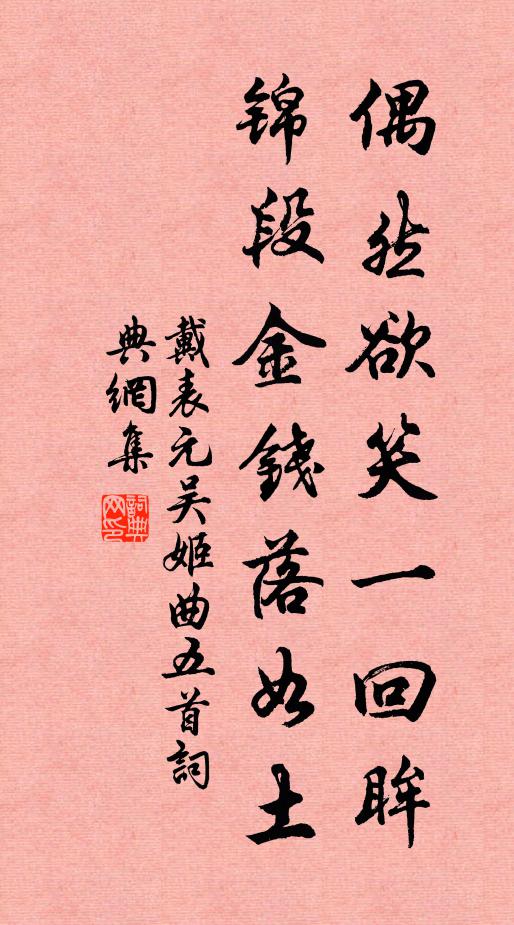 偶然欲笑一回眸
锦段金錢落如土
戴表元吴姬曲五首詞
典網集
詞典网印